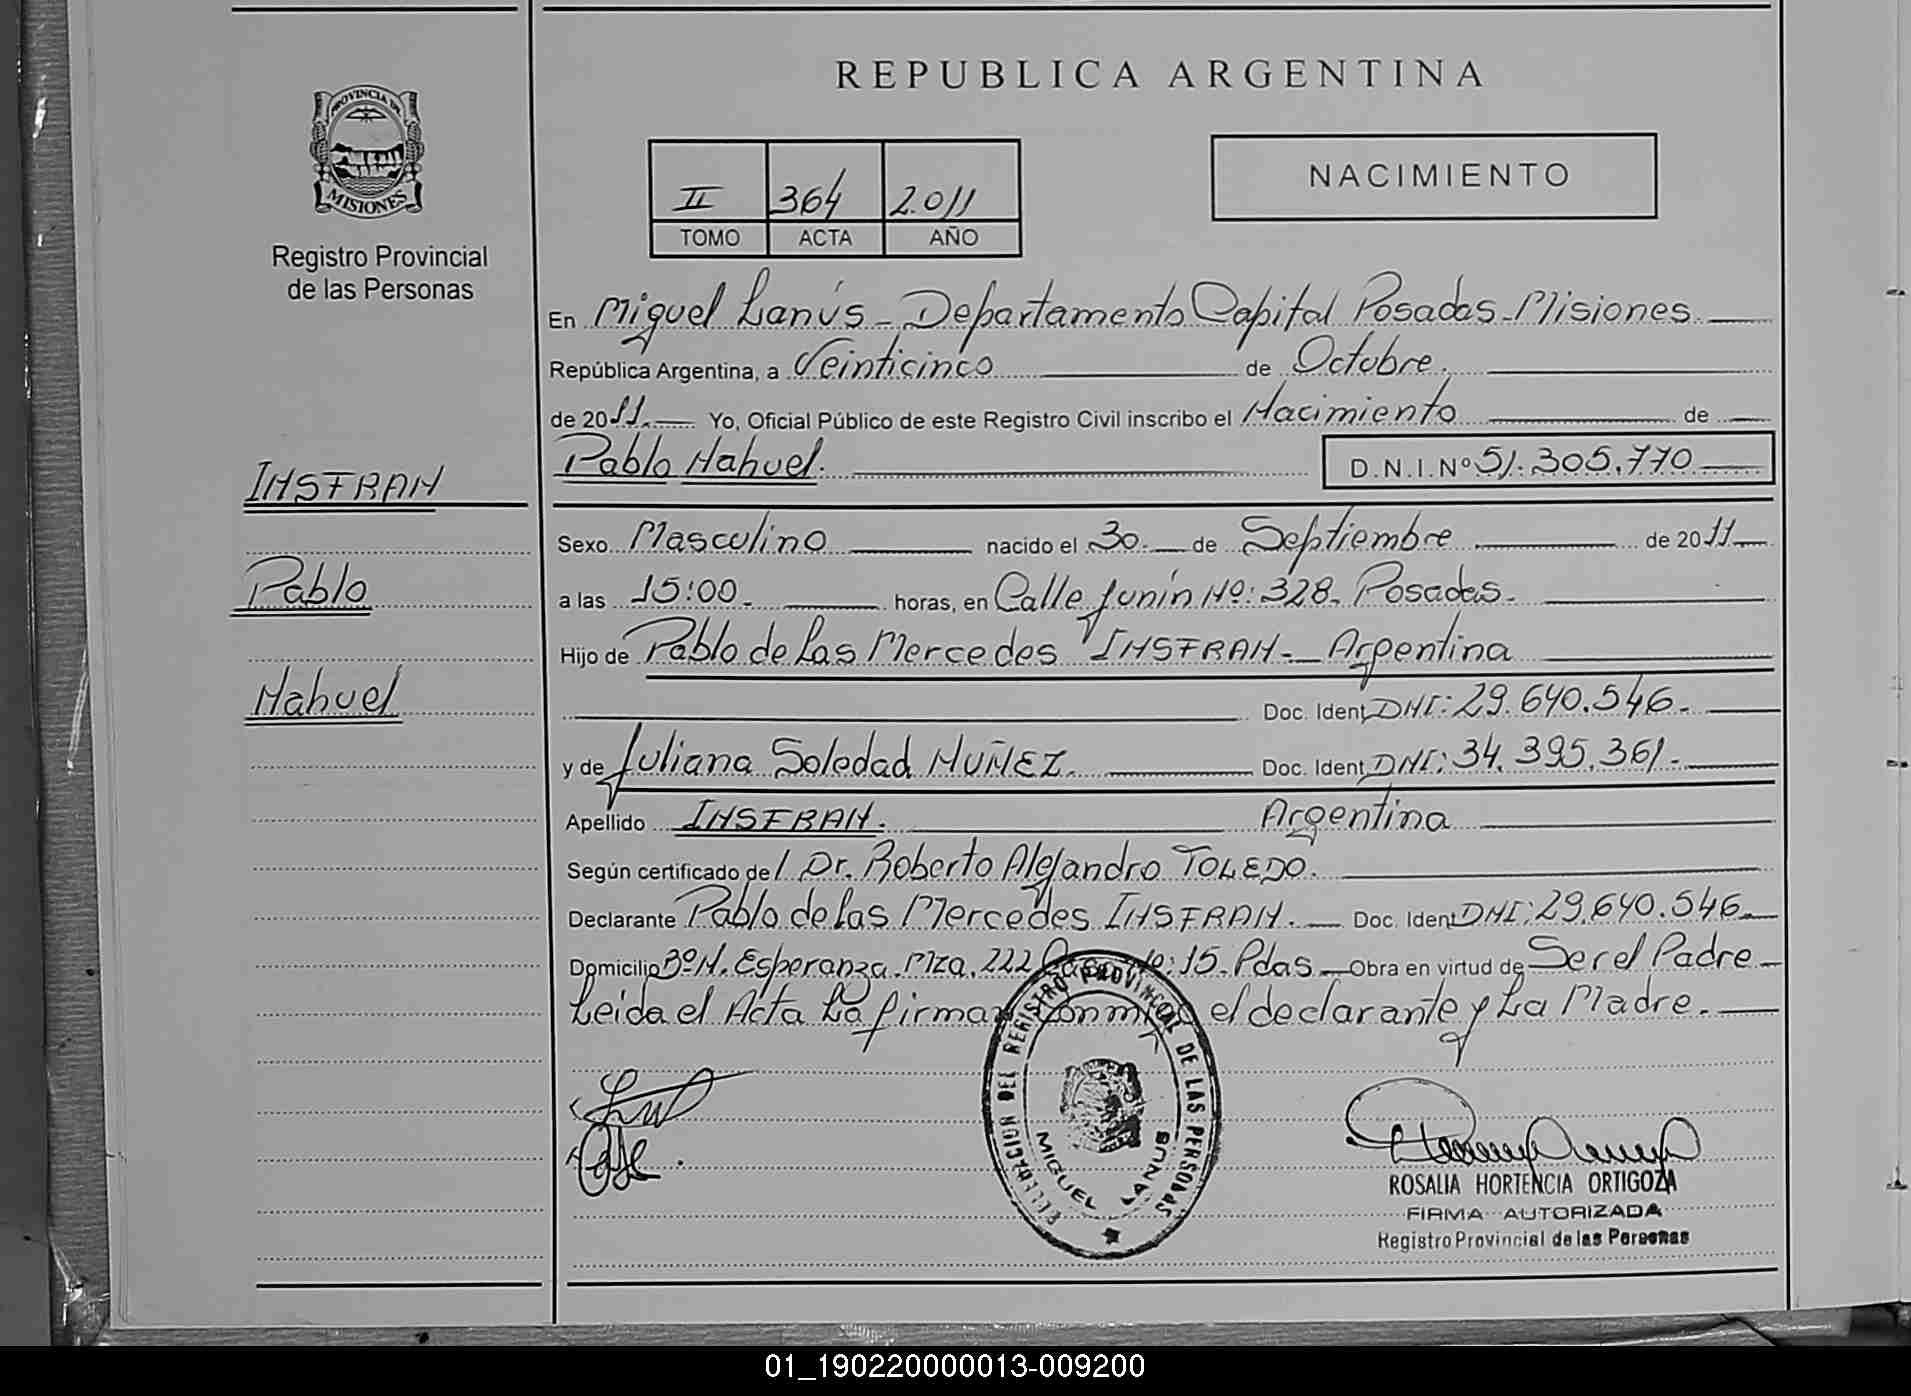 REPUBLICA ARGENTINA
PROVINCIA DE
MISIONES
Registro Provincial
de las Personas
II 364 2.011
TOMO ACTA AÑO
NACIMIENTO
En Miguel Lanús - Departamento Capital Posadas - Misiones.
República Argentina, a Veinticinco de Octubre.
de 2011. Yo, Oficial Público de este Registro Civil inscribo el Nacimiento de
Pablo Nahuel. D.N.I.Nº 51.305.770
INSFRAN
Pablo
Nahuel
Sexo Masculino nacido el 30. de Septiembre de 2011
a las 15:00. horas, en Calle Junín Nº: 328. Posadas.
Hijo de Pablo de Las Mercedes INSFRAN. Argentina
Doc. Ident DNI: 29.640.546.
y de Juliana Soledad NUÑEZ. Doc. Ident DNI: 34.395.361.
Apellido INSFRAN. Argentina
Según certificado del Dr. Roberto Alejandro TOLEDO.
Declarante Pablo de las Mercedes INSFRAN. Doc. Ident DNI: 29.640.546
Domicilio Bº N. Esperanza. Mza. 222 Casa Nº: 15. Pdas. Obra en virtud de Ser el Padre
Leida el Acta La firman Conmigo el declarante y La Madre.
DELEGACION DEL REGISTRO PROVINCIAL DE LAS PERSONAS
MIGUEL LANUS
ROSALIA HORTENCIA ORTIGOZA
FIRMA AUTORIZADA
Registro Provincial de las Personas
01_190220000013-009200